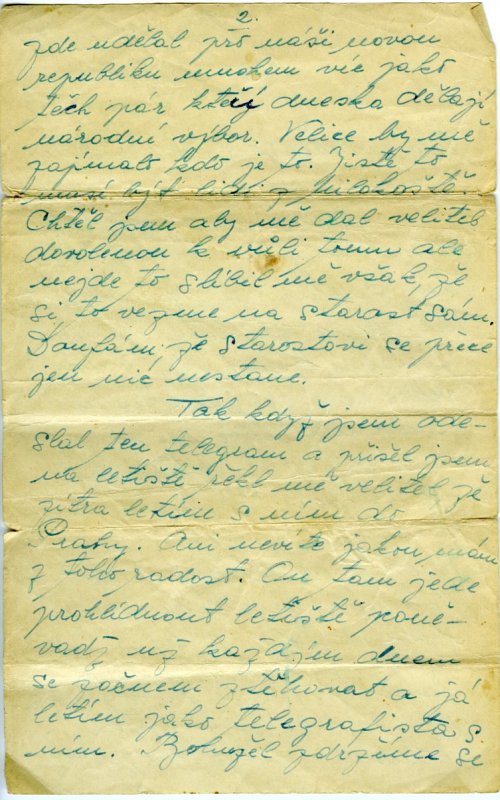 2.
zde udělal pro naši novou
republiku mnohem víc jako
těch pár kteří dneska dělají
národní výbor. Velice by mě
zajímalo kdo je to. Jistě to
musí být lidi z Milokoště.
Chtěl jsem aby mě dal velitel
dovolenou k vůli tomu ale
nejde to slíbil mě však, že
si to vezme na starost sám.
Doufám, že starostovi se přece
jen nic nestane.
Tak když jsem ode-
slal ten telegram a přišel jsem
na letiště řekl mě velitel že
zítra letím s ním do
Prahy. Ani nevíte jakou mám
z toho radost. On tam jede
prohlídnout letiště poně-
vadž už každým dnem
se začnem stěhovat a já
letím jako telegrafista s
ním. Bohužel zdržíme se